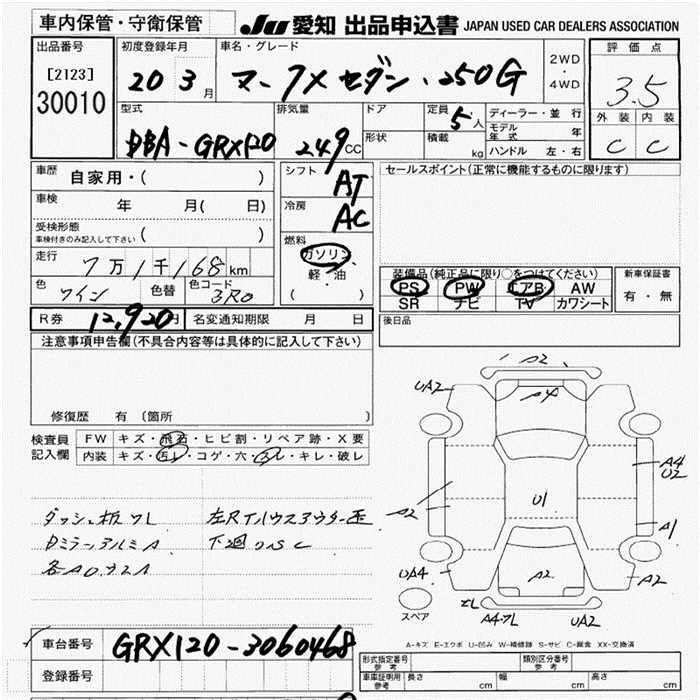 車内保管・守衛保管
JU 愛知 出品申込書 JAPAN USED CAR DEALERS ASSOCIATION
出品番号
[2123]
30010
初度登録年月
20 3月
車名・グレード
マークXセダン・250G
2WD
・
4WD
評価点
3.5
外装 内装
C C
型式
DBA-GRX120
排気量
249CC
ドア
形状
定員 5人
積載 kg
ディーラー・並行
モデル年式 年
ハンドル 左・右
車歴 自家用・( )
車検 年 月( 日)
受検形態
車検付きのみ記入して下さい ( )
走行 7万1千168km
色 ワイン
色替
色コード 3R0
シフト AT
冷房 AC
燃料
ガソリン
軽・油
( )
セールスポイント(正常に機能するものに限ります)
装備品(純正品に限り○をつけてください)
PS PW エアB AW
SR ナビ TV カワシート
新車保証書
有・無
R券 12,920円
名変通知期限 月 日
後日品
注意事項申告欄(不具合内容等は具体的に記入して下さい)
修復歴 有 〔箇所
検査員記入欄
FW キズ・飛石・ヒビ割・リペア跡・X要
内装 キズ・汚レ・コゲ・穴・スレ・キレ・破レ
ダッシュ板ワレ
DミラーアルミA
下廻りSC
A2
UA2
A4
A4
U2
A2
U1
A1
UA4
A2
A2
A4
UA2
スペア
A-キズ E-エクボ U-凹み W-補修跡 S-サビ C-腐食 XX-交換済
車台番号 GRX120-3060468
登録番号
形式指定番号 参考
類別区分番号 参考
車庫証明用 参考
長さ cm
幅 cm
高さ cm